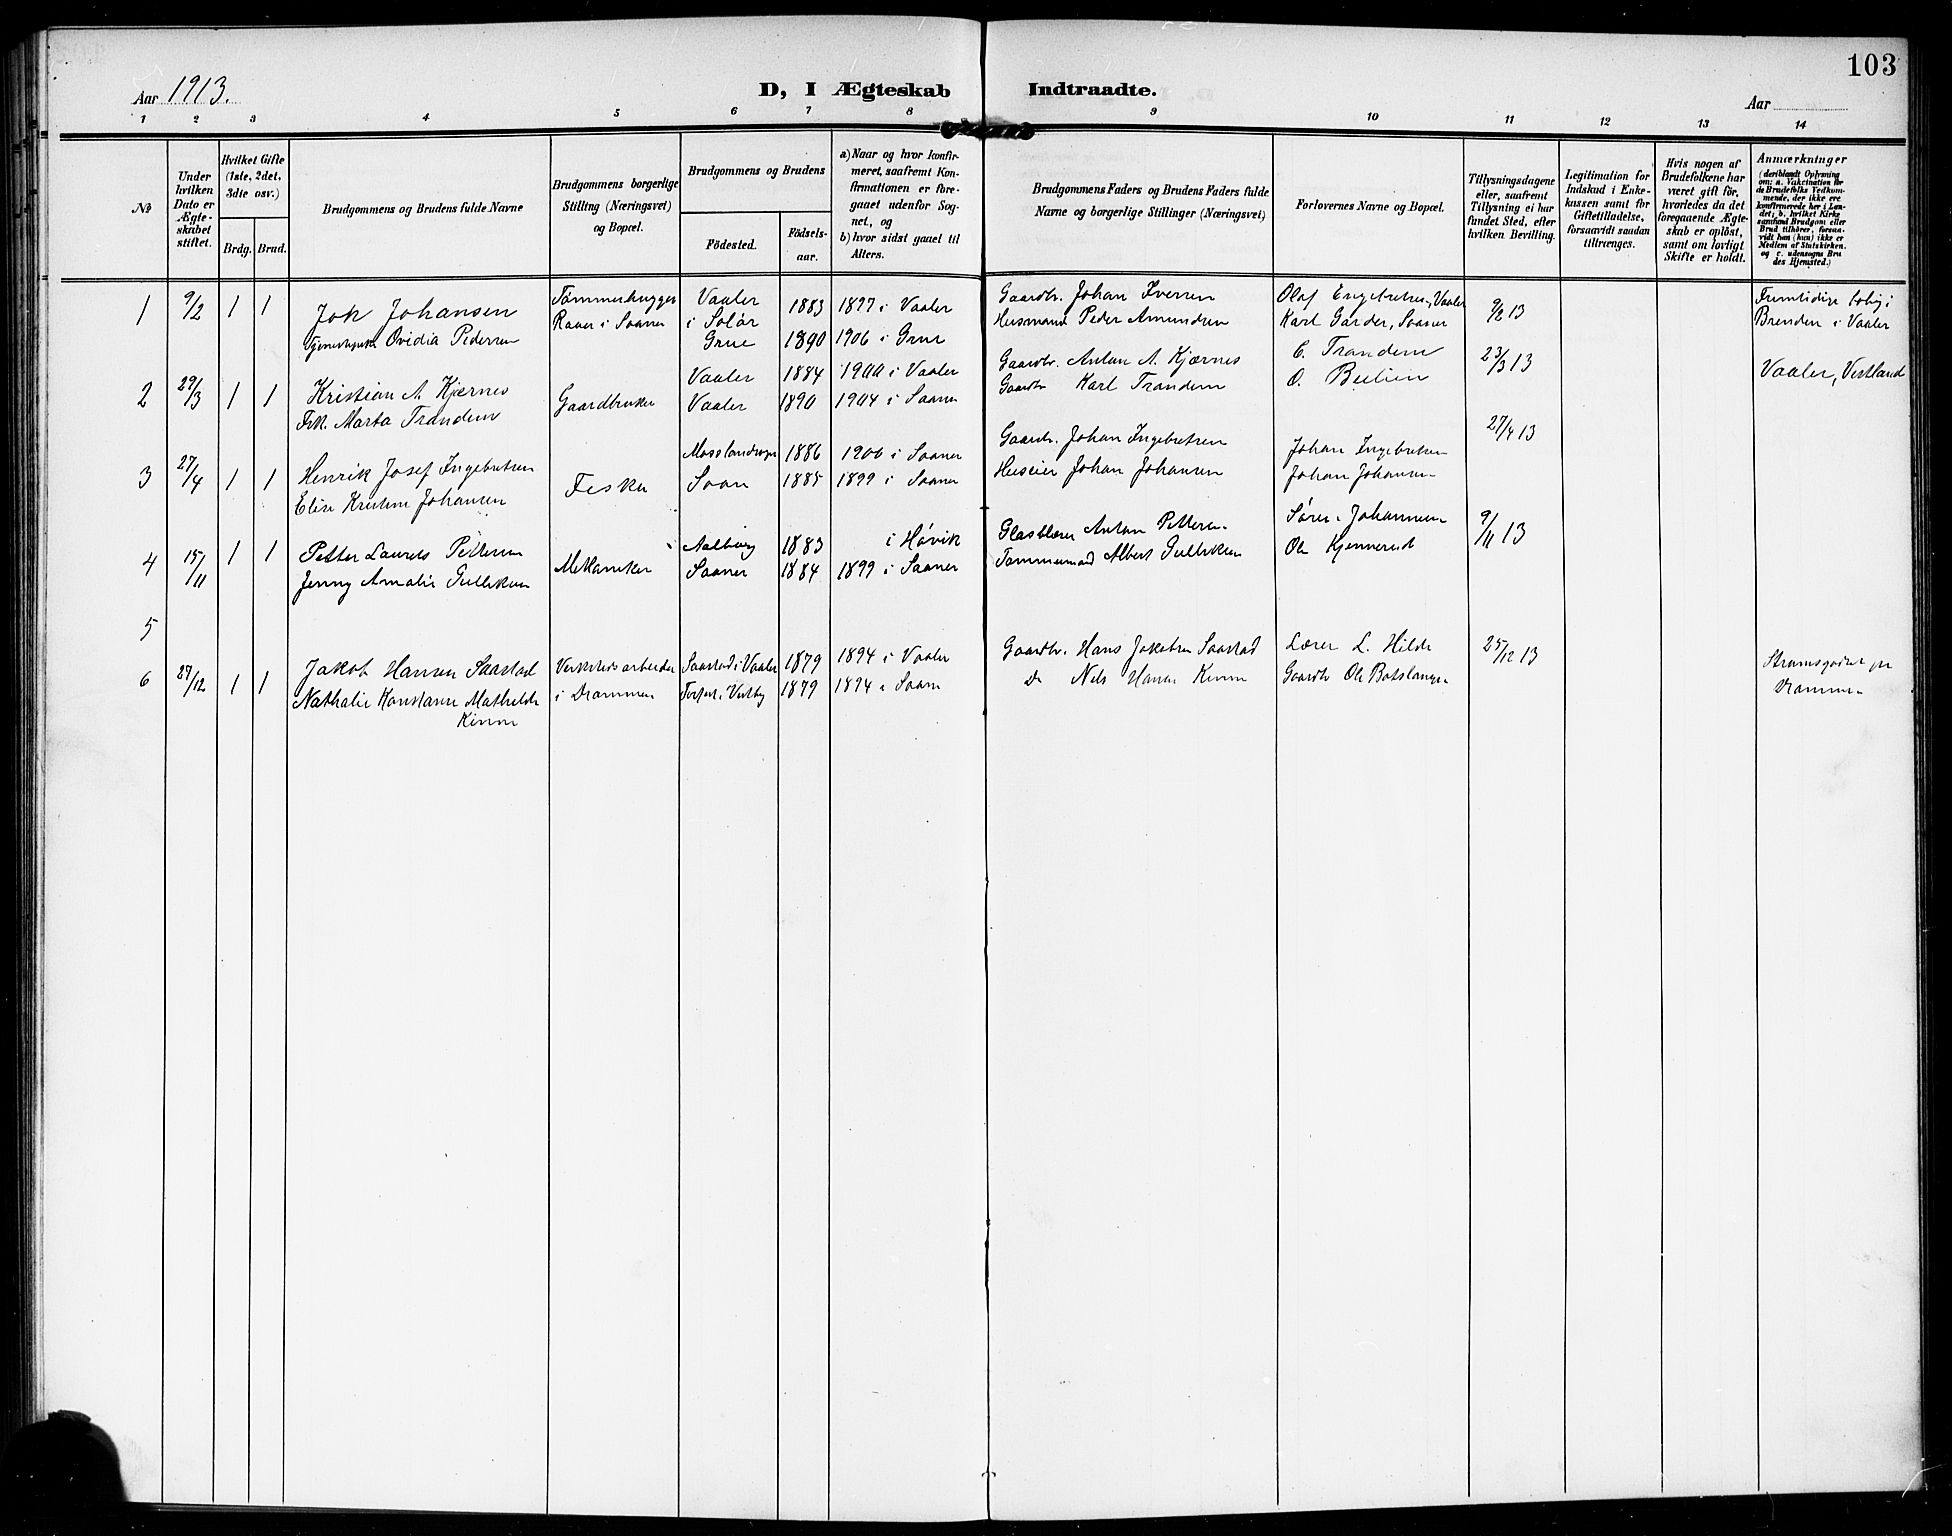 103
Aar 1913.
D, I Ægteskab Indtraadte.
Aar
1 2 3 4 5 6 7 8 9 10 11 12 13 14
№
Under hvilken Dato er Ægteskabet stiftet.
Hvilket Gifte (1ste, 2det, 3die osv.)
Brdg. Brud.
Brudgommens og Brudens fulde Navne
Brudgommens borgerlige Stilling (Næringsvei) og Bopæl.
Brudgommens og Brudens
Födested.
Födselsaar.
a) Naar og hvor konfirmeret, saafremt Konfirmationen er foregaaet udenfor Sognet, og
b) hvor sidst gaaet til Alters.
Brudgommens Faders og Brudens Faders fulde Navne og borgerlige Stillinger (Næringsvei)
Forlovernes Navne og Bopæl.
Tillysningsdagene eller, saafremt Tillysning ei har fundet Sted, efter hvilken Bevilling.
Legitimation for Indskud i Enkekassen samt for Giftetilladelse, forsaavidt saadan tiltrænges.
Hvis nogen af Brudefolkene har været gift för, hvorledes da det foregaaende Ægteskab er oplöst, samt om lovligt Skifte er holdt.
Anmærkninger (deriblandt Oplysning om: a. Vakcination for de Brudefolks Vedkommende, der ikke ere konfirmerede her i Landet; b. hvilket Kirkesamfund Brudgom eller Brud tilhörer, forsaavidt han (hun) ikke er Medlem af Statskirken. og c. udensogns Brudes Hjemsted.)
1 9/2 1 1 Johansen Tømmerhugger Vaaler 1883 1897 i Vaaler Gaardbr. Johan Iversen Olaf Engebretsen, Vaaler 9/2 13 Fremtidige bolig i
Ovidia Pedersen i Saaner i Solør Husmand Peder Amundsen Karl Garder, Saaner Brenden i Vaaler
Grue 1890 1906 i Grue
2 29/3 1 1 Kristian A. Kjærnes Gaardbruker Vaaler 1884 1900 i Vaaler Gaardbr. Anton A. Kjærnes C. Trandem 23/3 13 Vaaler, Vestland
Frk. Marta Trandem Vaaler 1890 1904 i Saaner Gaardb Karl Trandem O.
3 27/4 1 1 Henrik Josef Ingebretsen Fisker Mosslandsogn 1886 1900 i Saaner Gaardb. Johan Ingebretsen Johan Ingebretsen 27/4 13
Elise Kristine Johansen Soon 1885 1899 i Saaner Huseier Johan Johansen Johan Johansen
4 15/11 1 1 Petter Laurits Pettersen Mekaniker Aalborg 1883 i Høvik Glasblæser Anton Pettersen Søren Johannesen 9/11 13
Jenny Amalie Gulliksen Saaner 1884 1899 i Saaner Tømmermand Albert Gulliksen Ole Kjennerud
5
6 27/12 1 1 Jakob Hansen Saastad Verkstedsarbeider Saastad i Vaaler 1879 1894 i Vaaler Gaardbr. Hans Jakobsen Saastad Lærer L. Hilde 25/12 13 Strømsgodset pr
Nathalie Konstanse Mathilde i Drammen i Vestby 1879 1894 i Saaner Do Nils Hansen Kinn Gaardb Ole Botslangen Drammen
Kinn